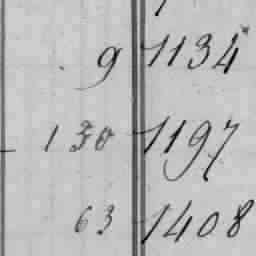 9 1134
130 1197
63 1408